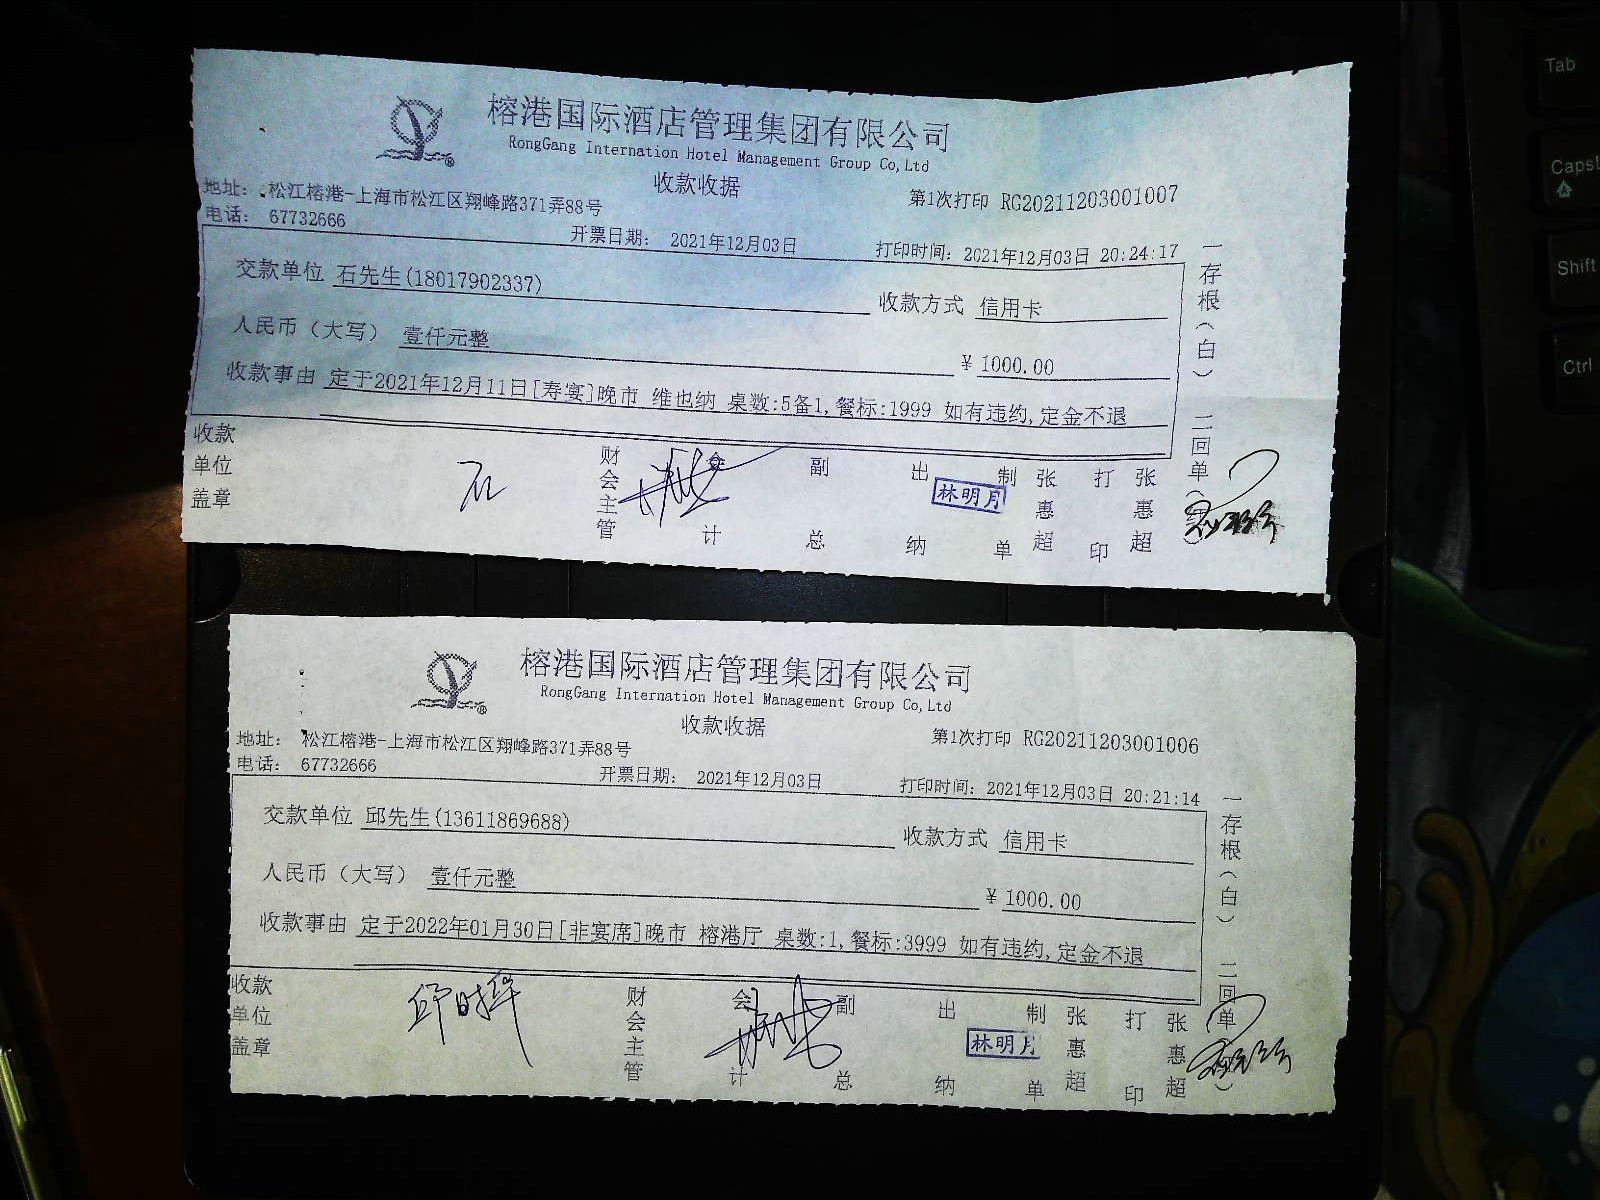 榕港国际酒店管理集团有限公司
RongGang Internation Hotel Management Group Co,Ltd
收款收据
地址: 松江榕港-上海市松江区翔峰路371弄88号
第1次打印 RG20211203001007
电话: 67732666
开票日期: 2021年12月03日
打印时间: 2021年12月03日 20:24:17
交款单位 石先生(18017902337)
收款方式 信用卡
人民币(大写) 壹仟元整
¥ 1000.00
收款事由 定于2021年12月11日[寿宴]晚市 维也纳 桌数:5备1,餐标:1999 如有违约,定金不退
一存根(白) 二回单(
收款单位盖章
石
财会主管
会计
副总
出纳
林明月
制单
张惠超
打印
张惠超
榕港国际酒店管理集团有限公司
RongGang Internation Hotel Management Group Co,Ltd
收款收据
地址: 松江榕港-上海市松江区翔峰路371弄88号
第1次打印 RG20211203001006
电话: 67732666
开票日期: 2021年12月03日
打印时间: 2021年12月03日 20:21:14
交款单位 邱先生(13611869688)
收款方式 信用卡
人民币(大写) 壹仟元整
¥ 1000.00
收款事由 定于2022年01月30日[非宴席]晚市 榕港厅 桌数:1,餐标:3999 如有违约,定金不退
一存根(白) 二回单
收款单位盖章
财会主管
会计
副总
出纳
林明月
制单
张惠超
打印
张惠超
Tab
Caps
Shift
Ctrl